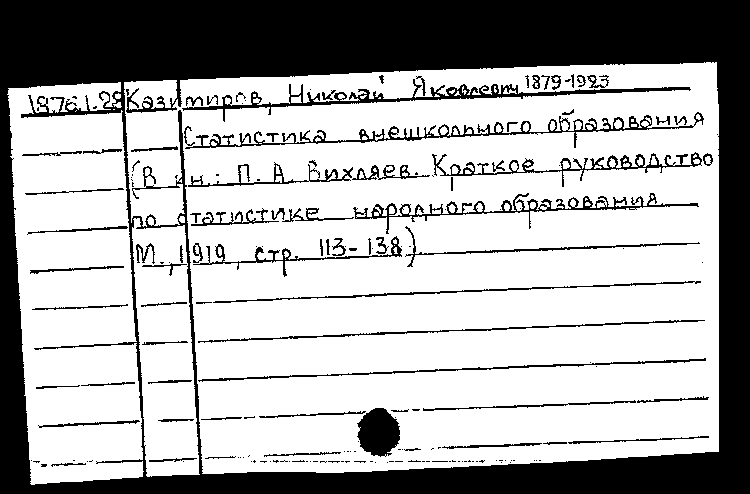 1976.1.28 Казимиров, Николай Яковлевич, 1879-1923
Статистика внешкольного образования
(В кн.: П. А. Вихляев. Краткое руководство
по статистике народного образования
М., 1919, стр. 113-138).